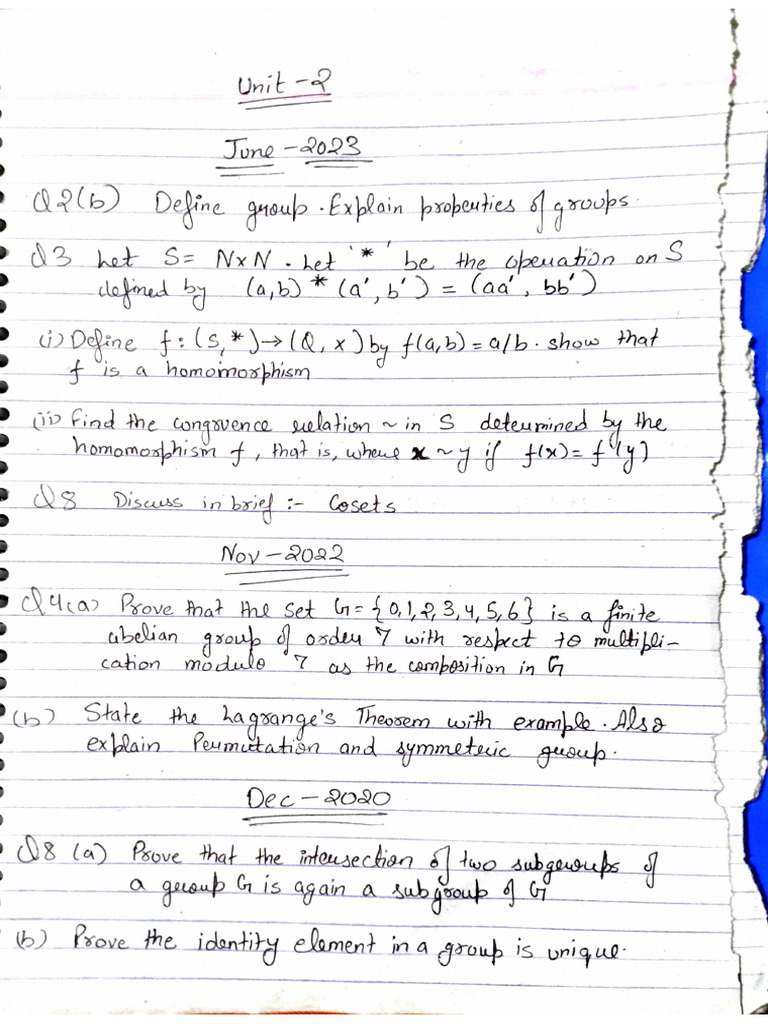 Unit-2
June-2023
Q2(b) Define group. Explain properties of groups.
Q3 Let S= N×N. Let '*' be the operation on S
defined by (a,b)*(a',b') = (aa', bb')
(i) Define f: (S,*)→(Q,×) by f(a,b)=a/b. show that
f is a homomorphism
(ii) Find the congruence relation ~ in S determined by the
homomorphism f, that is, where x~y if f(x)=f(y)
Q8 Discuss in brief:- Cosets
Nov-2022
Q4(a) Prove that the set G={0,1,2,3,4,5,6} is a finite
abelian group of order 7 with respect to multipli-
cation modulo '7 as the composition in G
(b) State the Lagrange's Theorem with example. Also
explain Permutation and symmeteric group.
Dec-2020
Q8 (a) Prove that the intersection of two subgroups of
a group G is again a subgroup of G
(b) Prove the identity element in a group is unique.